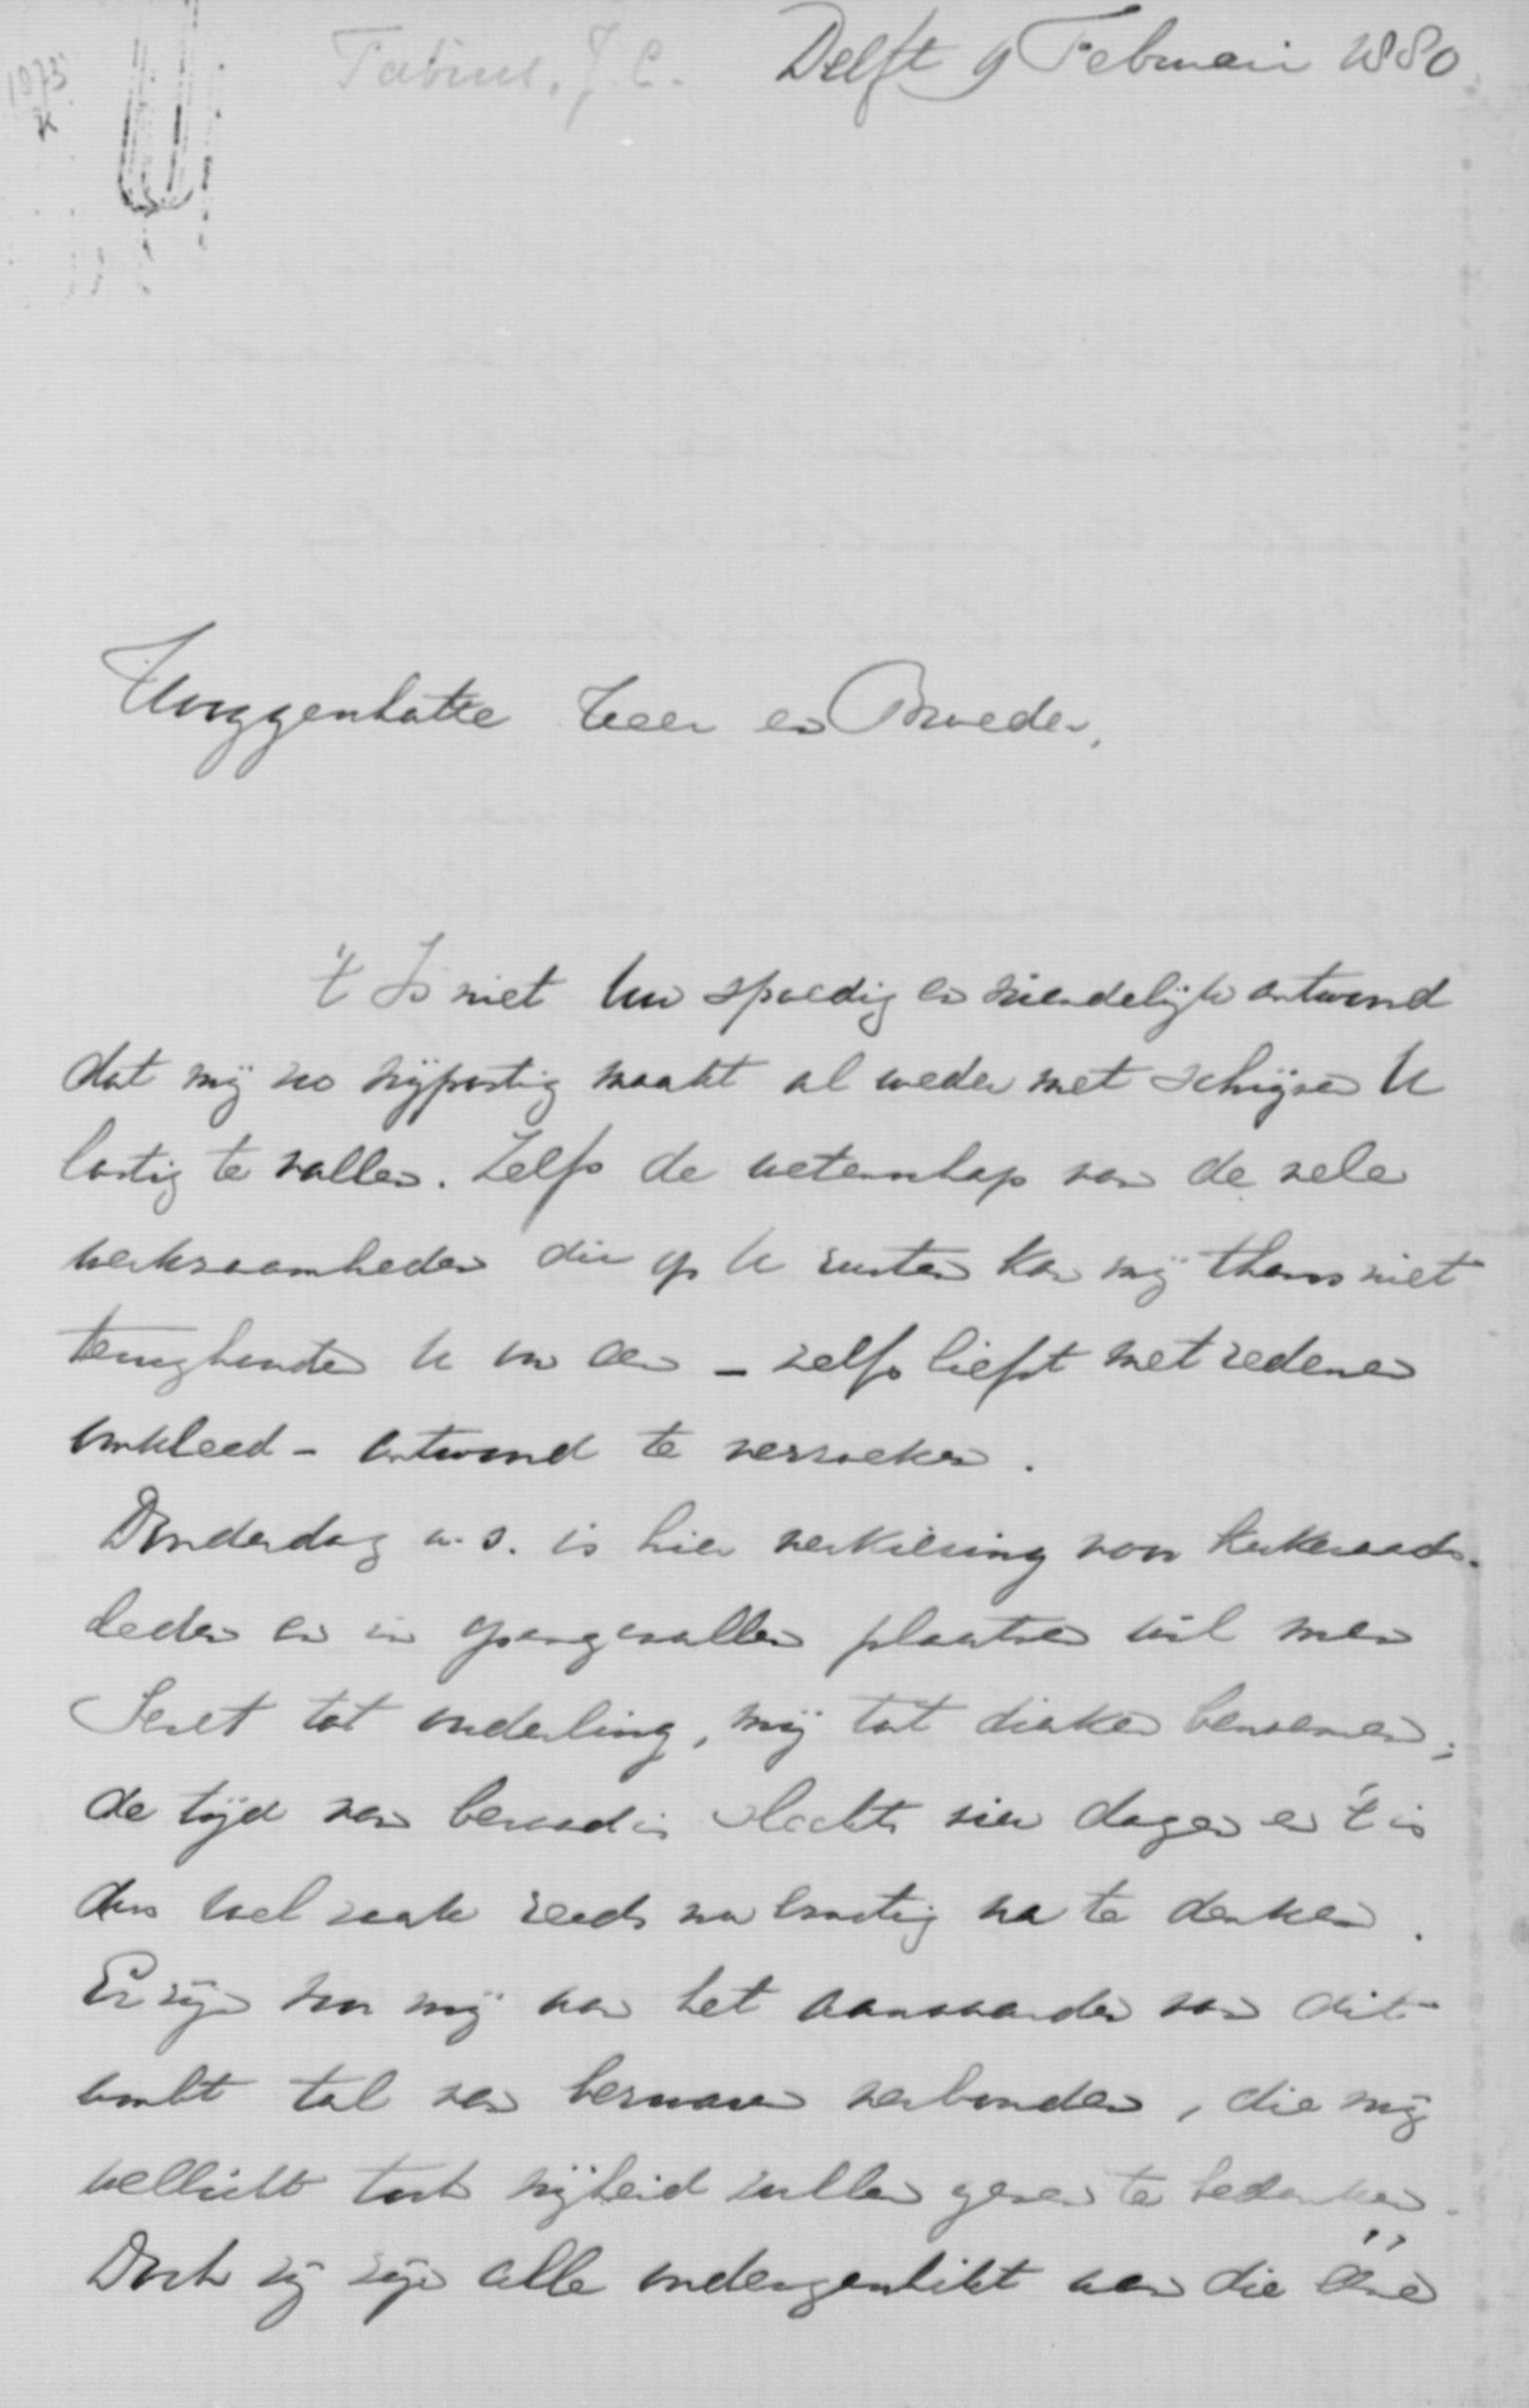 1975
K
Fabius, J. C. Delft 9 Februari 1880
Hooggeachte Heer en Broeder,
't Is niet Uw spoedig en vriendelijk antwoord
dat mij zoo vrijpostig maakt al weder met schrijven U
lastig te vallen. Zelfs de wetenschap van de vele
werkzaamheden die op U rusten kan mij thans niet
terughouden U om een – zelfs liefst met redenen
omkleed – antwoord te verzoeken.
Donderdag a.s. is hier verkiezing van kerkeraads-
leden en in opengevallen plaatsen wil men
Seret tot ouderling, mij tot diaken benoemen;
de tijd van beraad is slechts vier dagen en 't is
dus wel zaak reeds nu ernstig na te denken.
Er zijn voor mij aan het aanvaarden van dit
ambt tal van bezwaren verbonden, die mij
wellicht toch vrijheid zullen geven te bedanken.
Doch zij zijn alle ondergeschikt aan die ééne